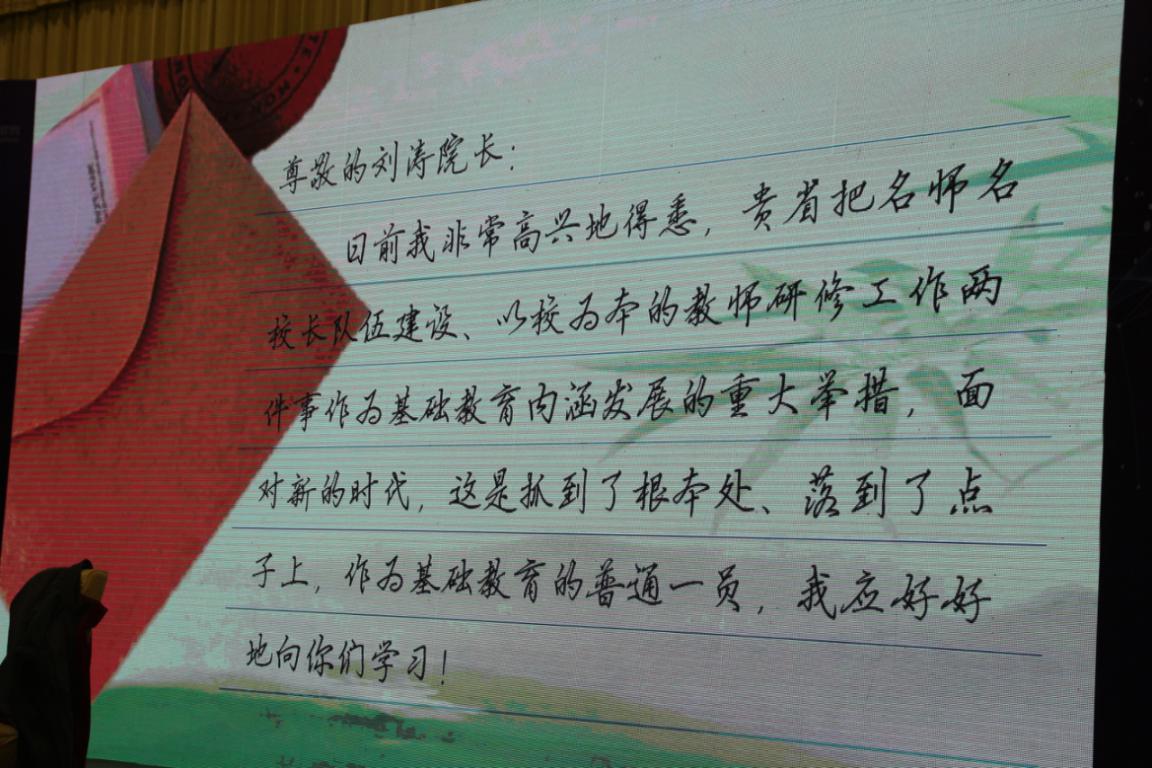 尊敬的刘涛院长：
日前我非常高兴地得悉，贵省把名师名
校长队伍建设、以校为本的教师研修工作两
件事作为基础教育内涵发展的重大举措，面
对新的时代，这是抓到了根本处、落到了点
子上，作为基础教育的普通一员，我应好好
地向你们学习！